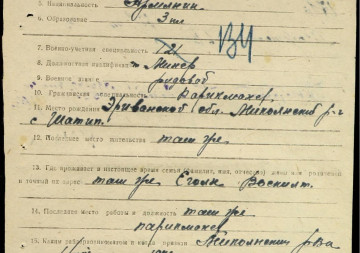 5. Национальность Армянин
6. Образование 3 кл
ВУ
7. Военно-учетная специальность 121
8. Должностная квалификация Минер
9. Военное звание рядовой
10. Гражданская специальность Парикмахер
11. Место рождения Эриванской обл. Микоянский р-н
с Шатип.
12. Постоянное место жительства там же
13. Где проживает в настоящее время семья (фамилия, имя, отчество) жены или родителей
и точный их адрес там же
14. Последнее место работы и должность там же
парикмахер
15. Каким райвоенкоматом и когда призван Микоянским рва